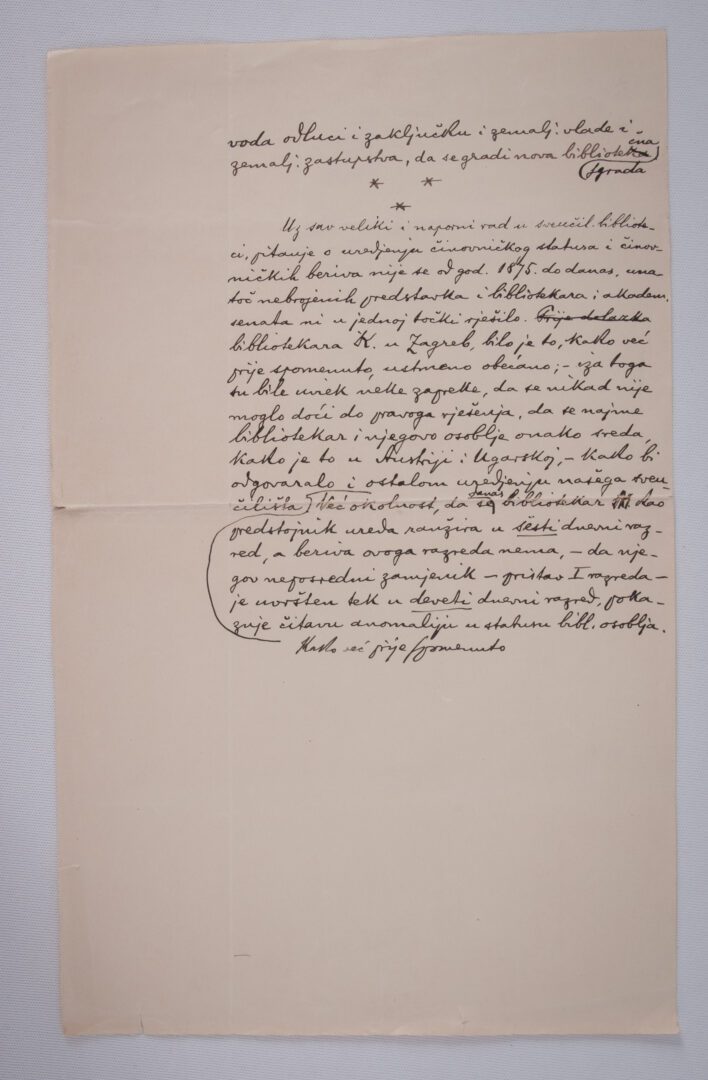 voda odluci i zaključku i zemalj. vlade i
zemalj. zastupstva, da se gradi nova biblioteka čna
sgrada
* *
*
Uz sav veliki i naporni rad u sveučil. bibliote-
ci, pitanje o uredjenju činovničkog statusa i činov-
ničkih beriva nije se od god. 1875. do danas, una-
toč nebrojenih predstavka i bibliotekara i akadem.
senata ni u jednoj točki riješilo. Prije dolazka
bibliotekara K. u Zagreb, bilo je to, kako već
prije spomenuto, ustmeno obećano; – iza toga
su bile uviek neke zapreke, da se nikad nije
moglo doći do pravoga rješenja, da se najme
bibliotekar i njegovo osoblje onako sreda,
kako je to u Austriji i Ugarskoj, – kako bi
odgovaralo i ostalom uredjenju našega sveu-
čilišta. Već okolnost, da danas se bibliotekar kao
predstojnik ureda ranžira u šesti dnevni raz-
red, a beriva ovoga razreda nema, – da nje-
gov neposredni zamjenik – pristav I razreda –
je uvršten tek u deveti dnevni razred, poka-
zuje čitavu anomaliju u statusu bibl. osoblja.
Kako već prije spomenuto